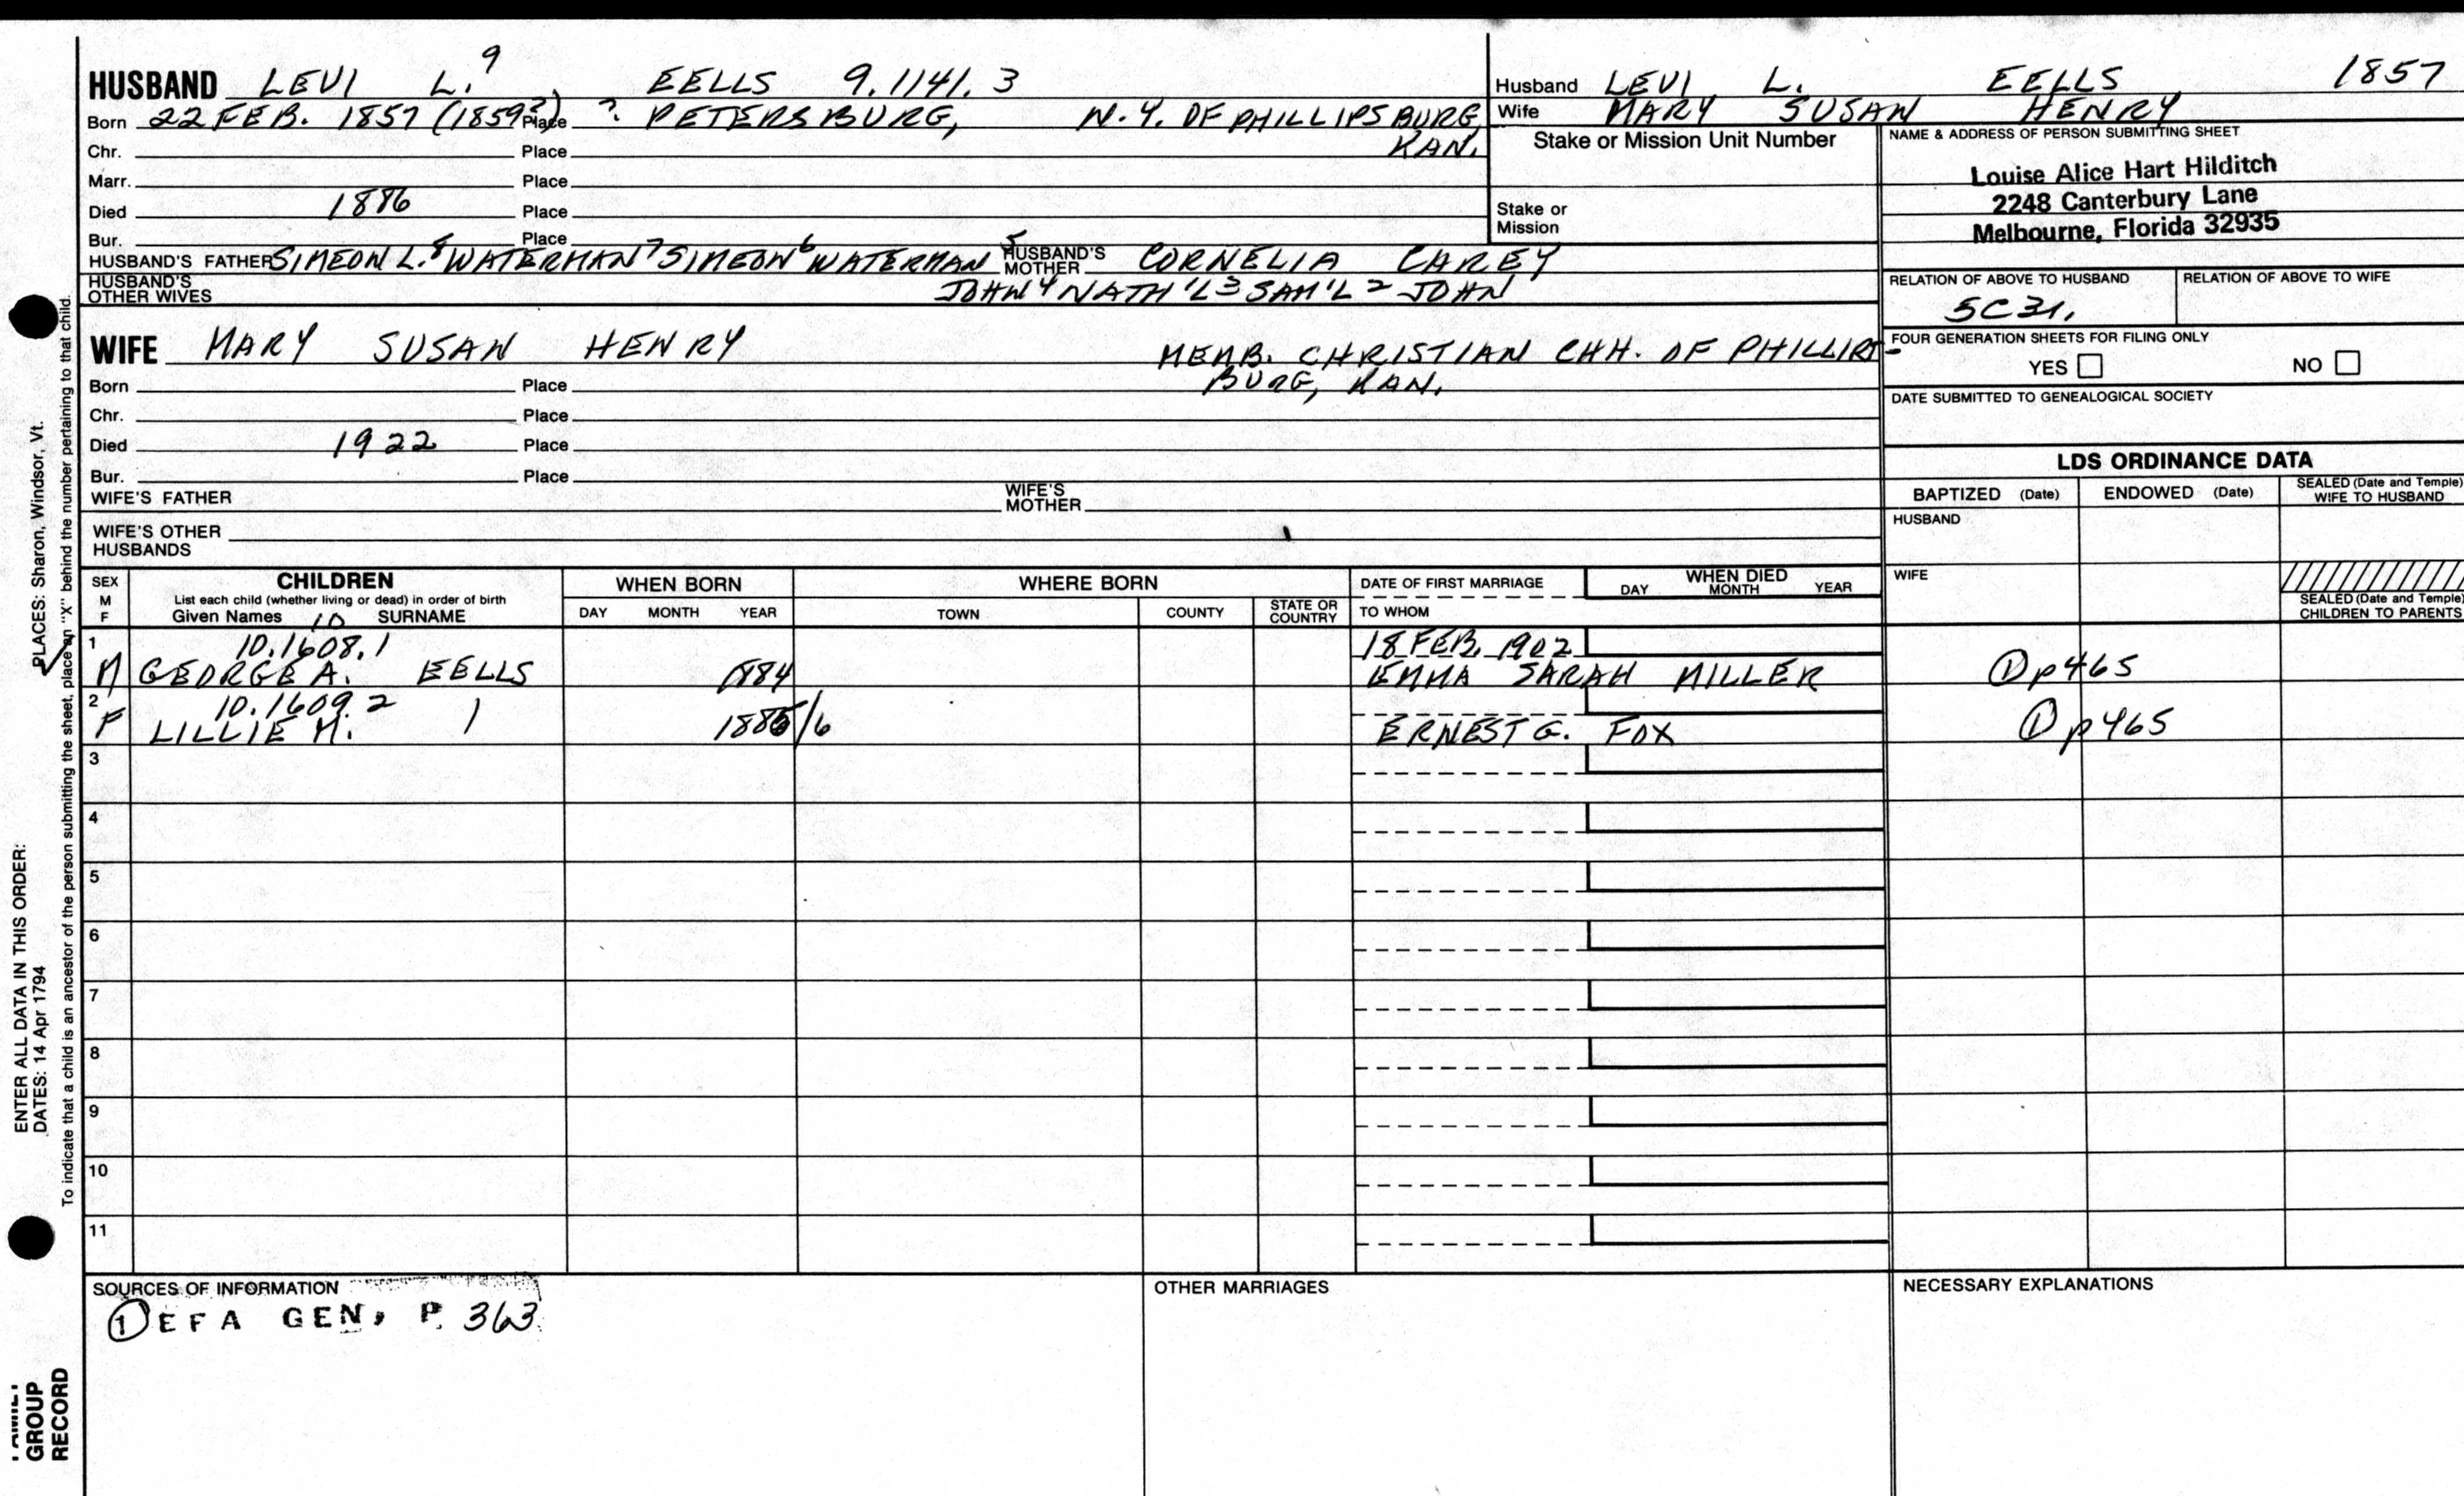 HUSBAND LEVI L.⁹ EELLS 9.1141.3
Born 22 FEB. 1857 (1859?) Place ? PETERSBURG, N.Y. OF PHILLIPSBURG
KAN.
Chr. Place
Marr. Place
Died 1886 Place
Bur. Place
HUSBAND'S FATHER SIMEON L.⁸ WATERMAN⁷ SIMEON⁶ WATERMAN⁵ HUSBAND'S MOTHER CORNELIA CAREY
HUSBAND'S OTHER WIVES JOHN⁴ NATH'L³ SAM'L² JOHN
WIFE MARY SUSAN HENRY MEMB. CHRISTIAN CHH. OF PHILLIPS-
BURG, KAN.
Born Place
Chr. Place
Died 1922 Place
Bur. Place
WIFE'S FATHER WIFE'S MOTHER
WIFE'S OTHER HUSBANDS
Husband LEVI L. EELLS 1857
Wife MARY SUSAN HENRY
Stake or Mission Unit Number
Stake or
Mission
NAME & ADDRESS OF PERSON SUBMITTING SHEET
Louise Alice Hart Hilditch
2248 Canterbury Lane
Melbourne, Florida 32935
RELATION OF ABOVE TO HUSBAND RELATION OF ABOVE TO WIFE
5C31.
FOUR GENERATION SHEETS FOR FILING ONLY
YES NO
DATE SUBMITTED TO GENEALOGICAL SOCIETY
LDS ORDINANCE DATA
BAPTIZED (Date) ENDOWED (Date) SEALED (Date and Temple) WIFE TO HUSBAND
HUSBAND
WIFE
SEALED (Date and Temple) CHILDREN TO PARENTS
SEX M F
CHILDREN
List each child (whether living or dead) in order of birth
Given Names 10 SURNAME
WHEN BORN
DAY MONTH YEAR
WHERE BORN
TOWN COUNTY STATE OR COUNTRY
DATE OF FIRST MARRIAGE
TO WHOM
WHEN DIED
DAY MONTH YEAR
1 10.1608.1 18 FEB. 1902
M GEORGE A. EELLS 1884 EMMA SARAH MILLER ① p465
2 10.1609.2
F LILLIE M. 1 1885/6 ERNEST G. FOX ① p465
3
4
5
6
7
8
9
10
11
SOURCES OF INFORMATION
① EFA GEN, P. 363
OTHER MARRIAGES
NECESSARY EXPLANATIONS
PLACES: Sharon, Windsor, Vt.
To indicate that a child is an ancestor of the person submitting the sheet, place an "X" behind the number pertaining to that child.
ENTER ALL DATA IN THIS ORDER:
DATES: 14 Apr 1794
GROUP
RECORD